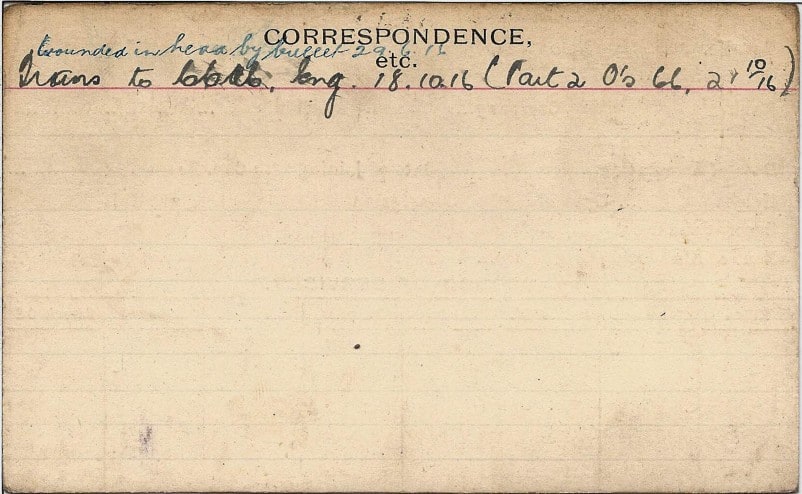 CORRESPONDENCE,
etc.
Wounded in head by bullet 29.6.16
Trans to Eng. 18.10.16 (Part 2 O's 66, 2 10/16)